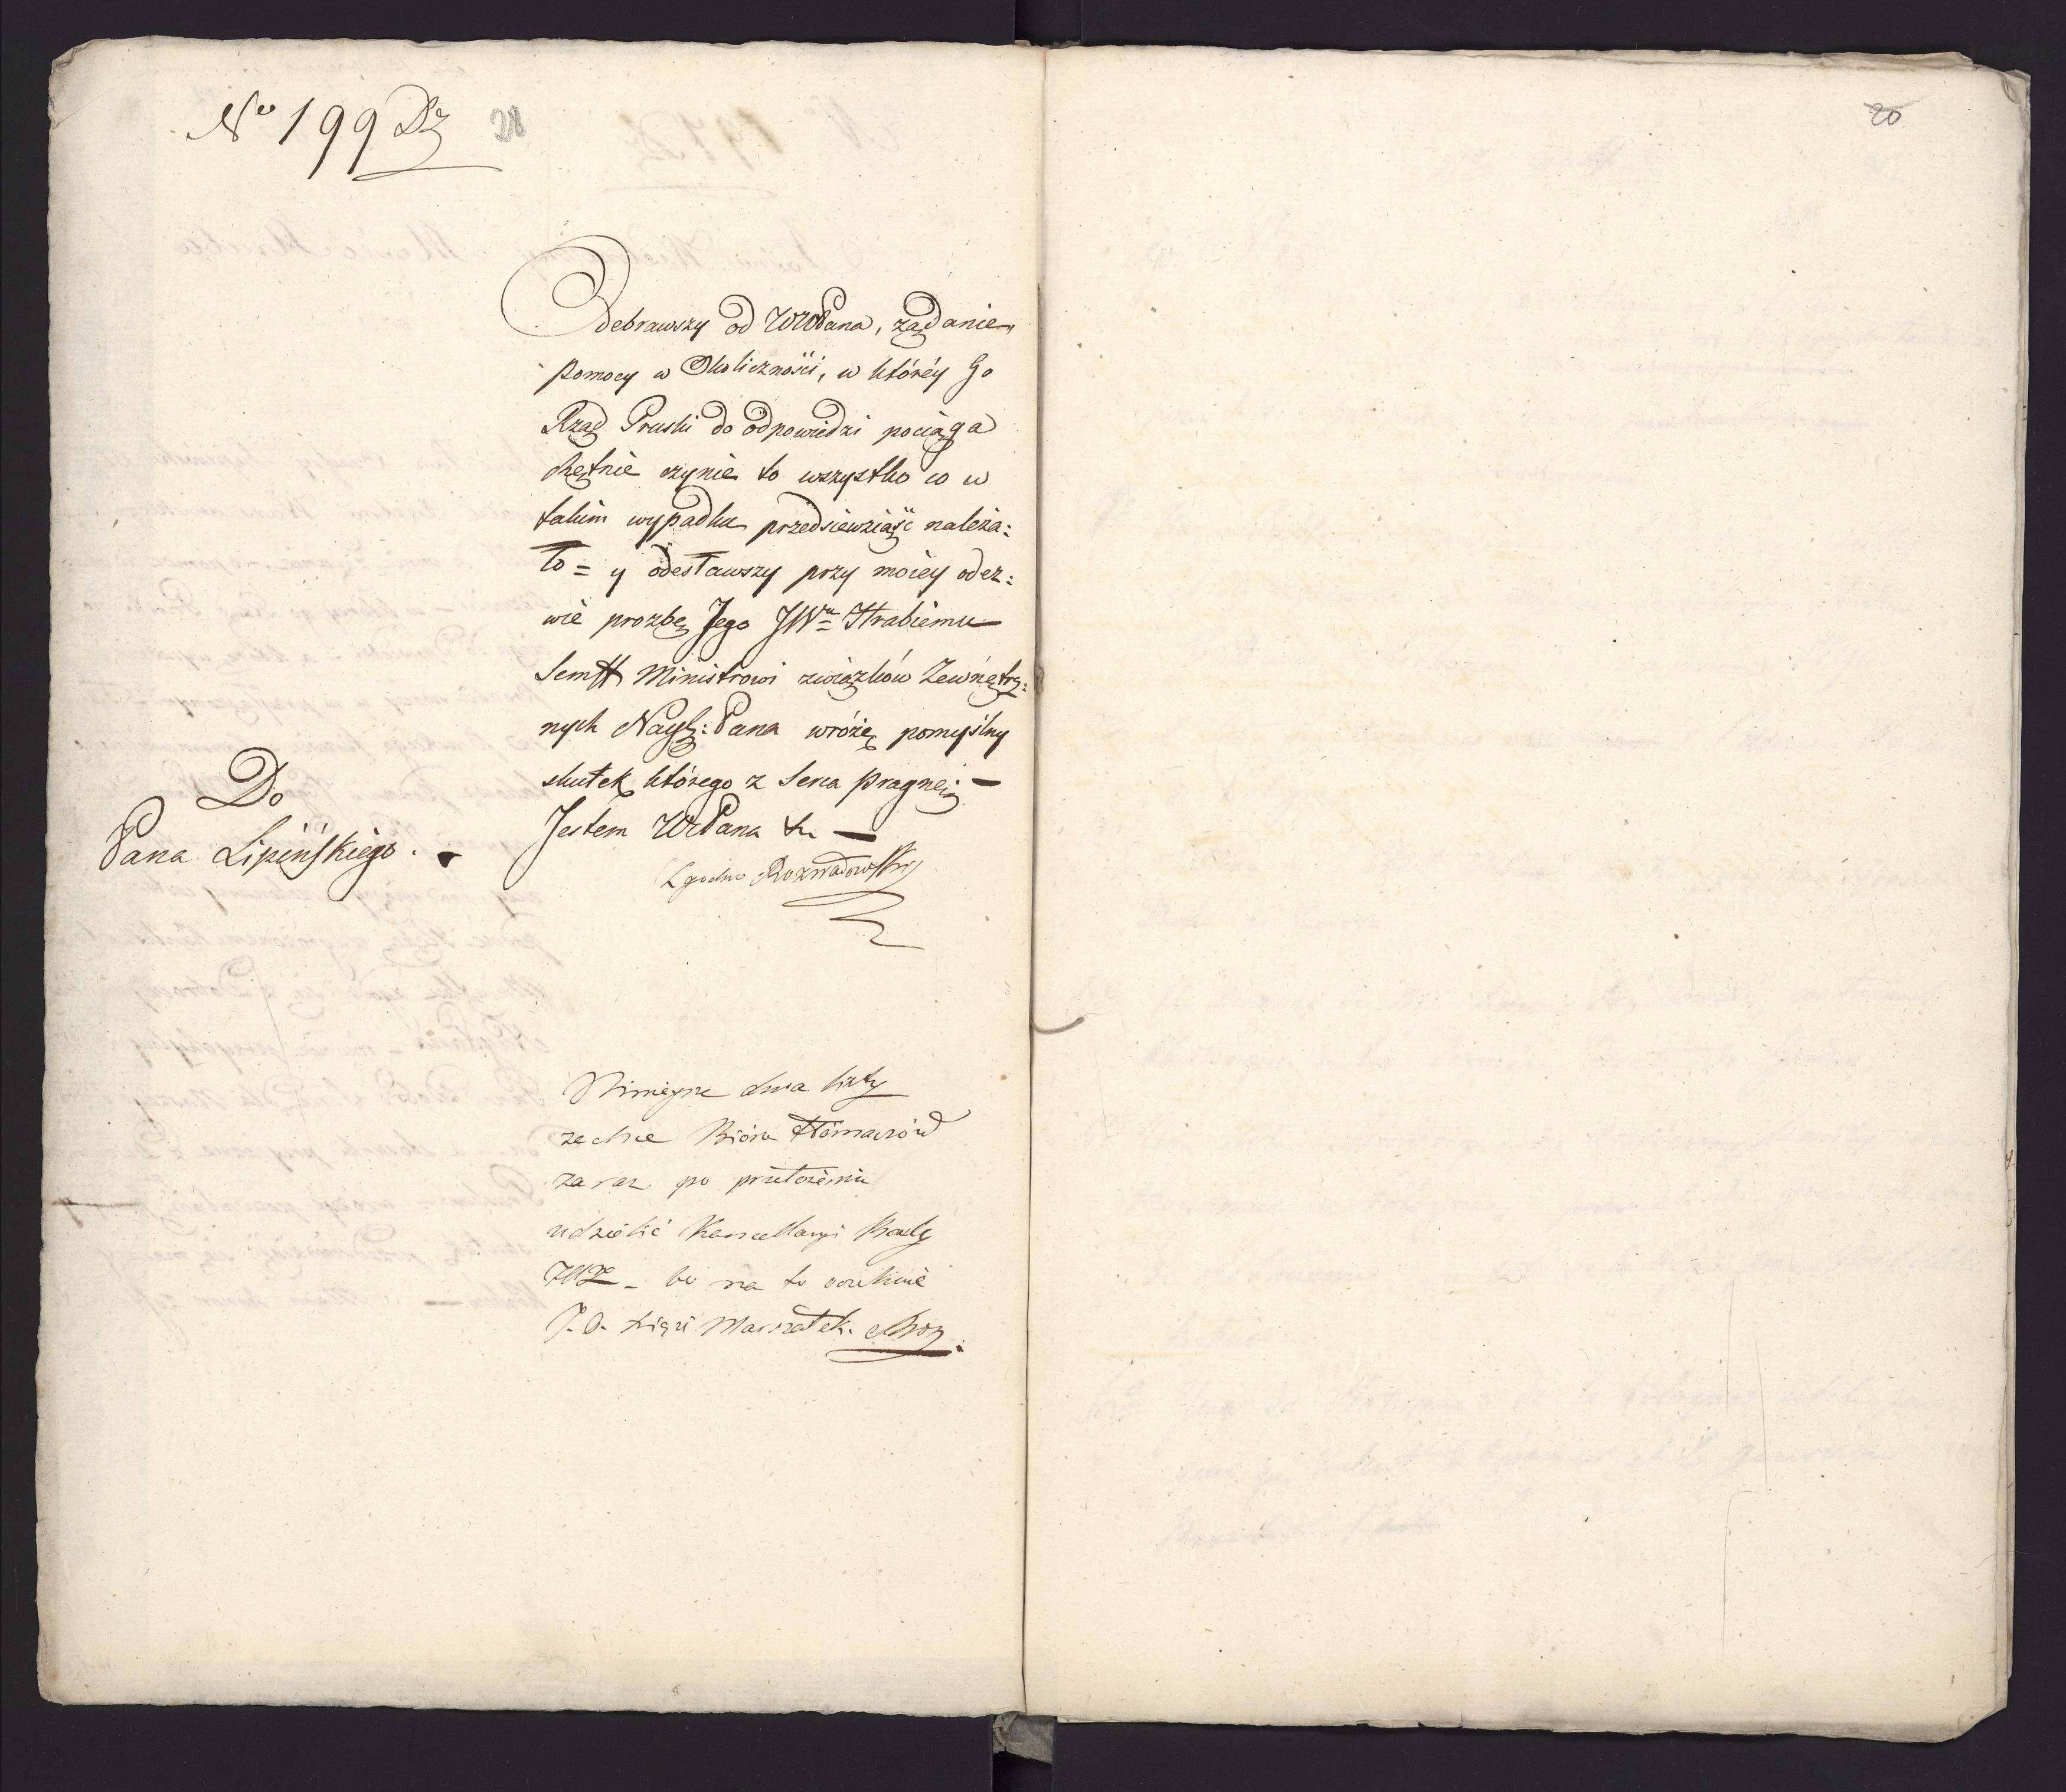 No 199 Dz
28
20
Odebrawszy od WWPana, żądanie
pomocy w Okoliczności, w któréy Go
Rząd Pruski do odpowiedzi pociąga
chętnie czynię to wszystko co w
takim wypadku przedsiewziąść należa:
ło = y odesławszy przy moiey odez:
wie prozbę Jego JWu Hrabiemu
Senfft Ministrowi związków Zewnętrz:
nych Nayj: Pana wróżę pomyślny
skutek którego z Serca pragnę; —
Jestem WPana &c —
Zgodno Rozwadowski
Do
Pana Lipińskiego.
Ninieysze dwa listy
zechce Bióro tłómaczów
zaraz po przełożeniu
udzielić Kancellaryi Rady
bo na to oczekuie
J. O. Xiąże Marszałek.